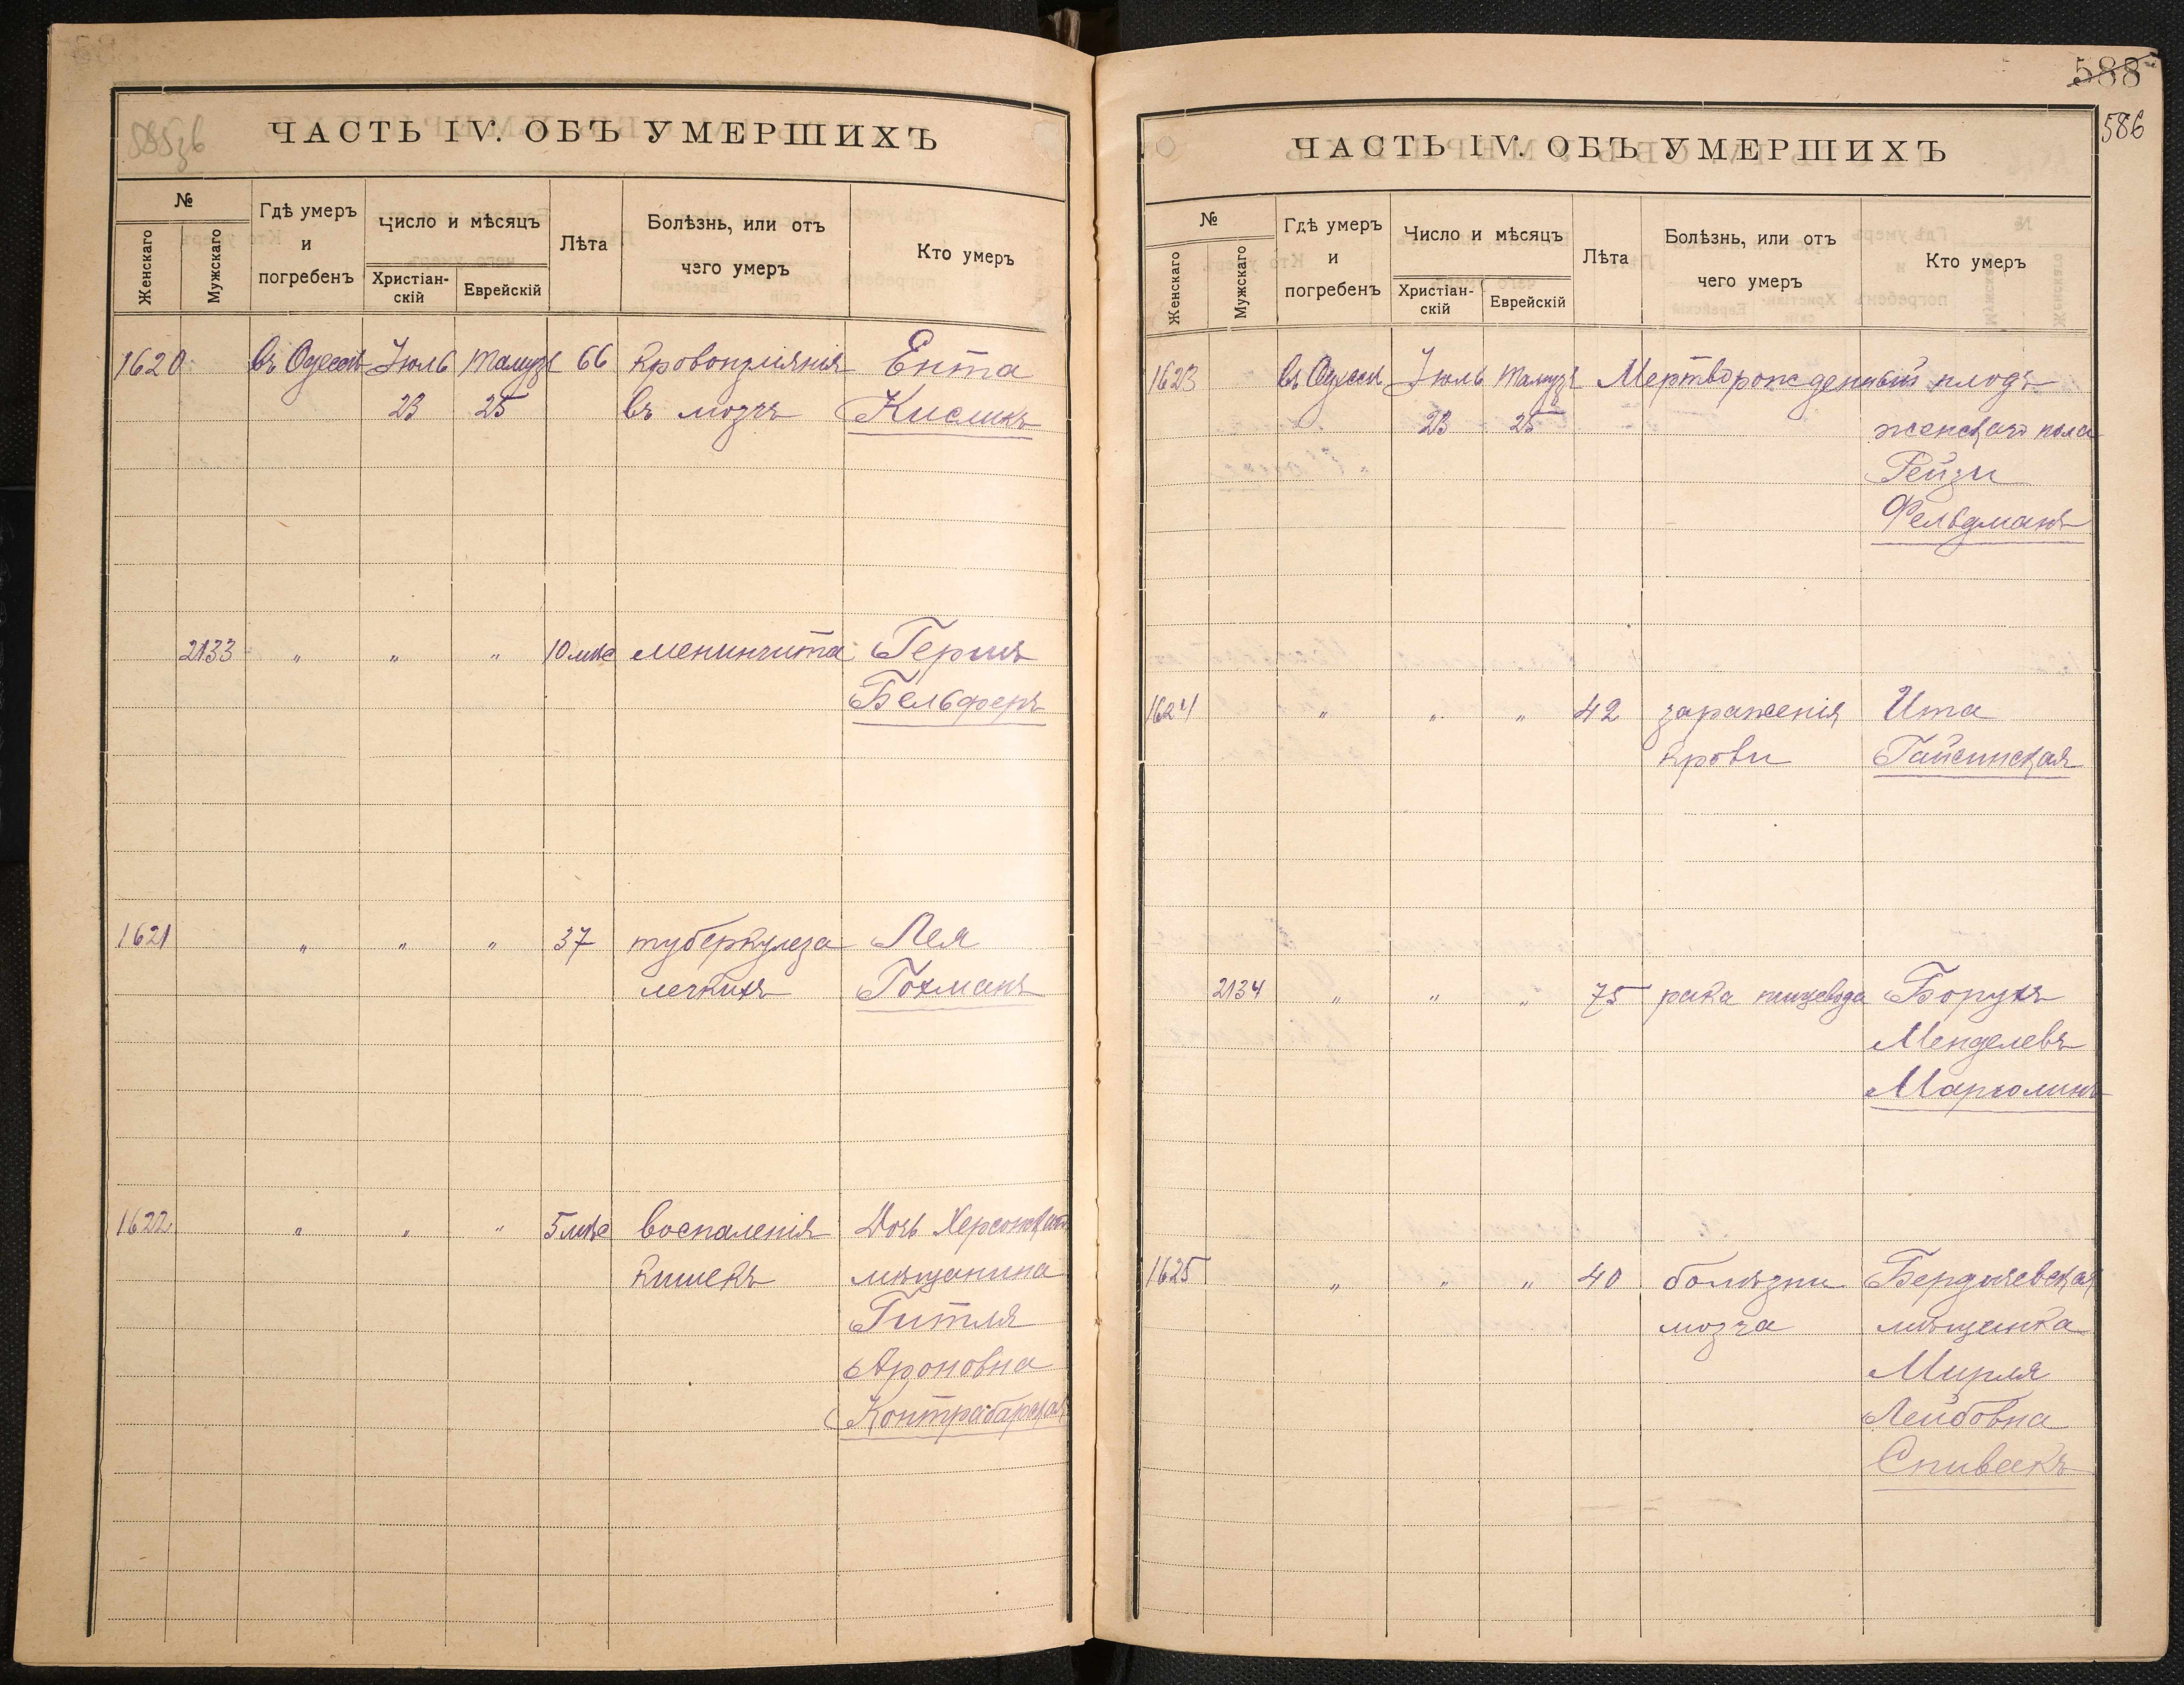 ЧАСТЬ IV. ОБЪ УМЕРШИХЪ
№
Женскаго
Мужскаго
Гдѣ умеръ
и
погребенъ
Число и мѣсяцъ
Христіан-
скій
Еврейскій
Лѣта
Болѣзнь, или отъ
чего умеръ
Кто умеръ
1620 въ Одессѣ Іюль Тамузъ 66 кровоизліянія Ента
23 25 въ мозгъ Кисликъ
2133 " " " 10 мѣс менингита Гершъ
Бельферъ
1621 " " " 37 туберкулеза Лея
легкихъ Гохманъ
1622 " " " 5 мѣс воспаленія Дочь Херсонскаго
кишекъ мѣщанина
Гитля
Ароновна
Контрабарская
588
586
ЧАСТЬ IV. ОБЪ УМЕРШИХЪ
№
Женскаго
Мужскаго
Гдѣ умеръ
и
погребенъ
Число и мѣсяцъ
Христіан-
скій
Еврейскій
Лѣта
Болѣзнь, или отъ
чего умеръ
Кто умеръ
1623 въ Одессѣ Іюль Тамузъ Мертворожденный плодъ
23 25 женскаго пола
Рейзи
Фельдманъ
1624 " " " 42 зараженія Ита
крови Гайсинская
2134 " " " 75 рака пищевода Борухъ
Менделевъ
Марголинъ
1625 " " " 40 болѣзни Бердичевская
мозга мѣщанка
Мирля
Лейбовна
Спивакъ